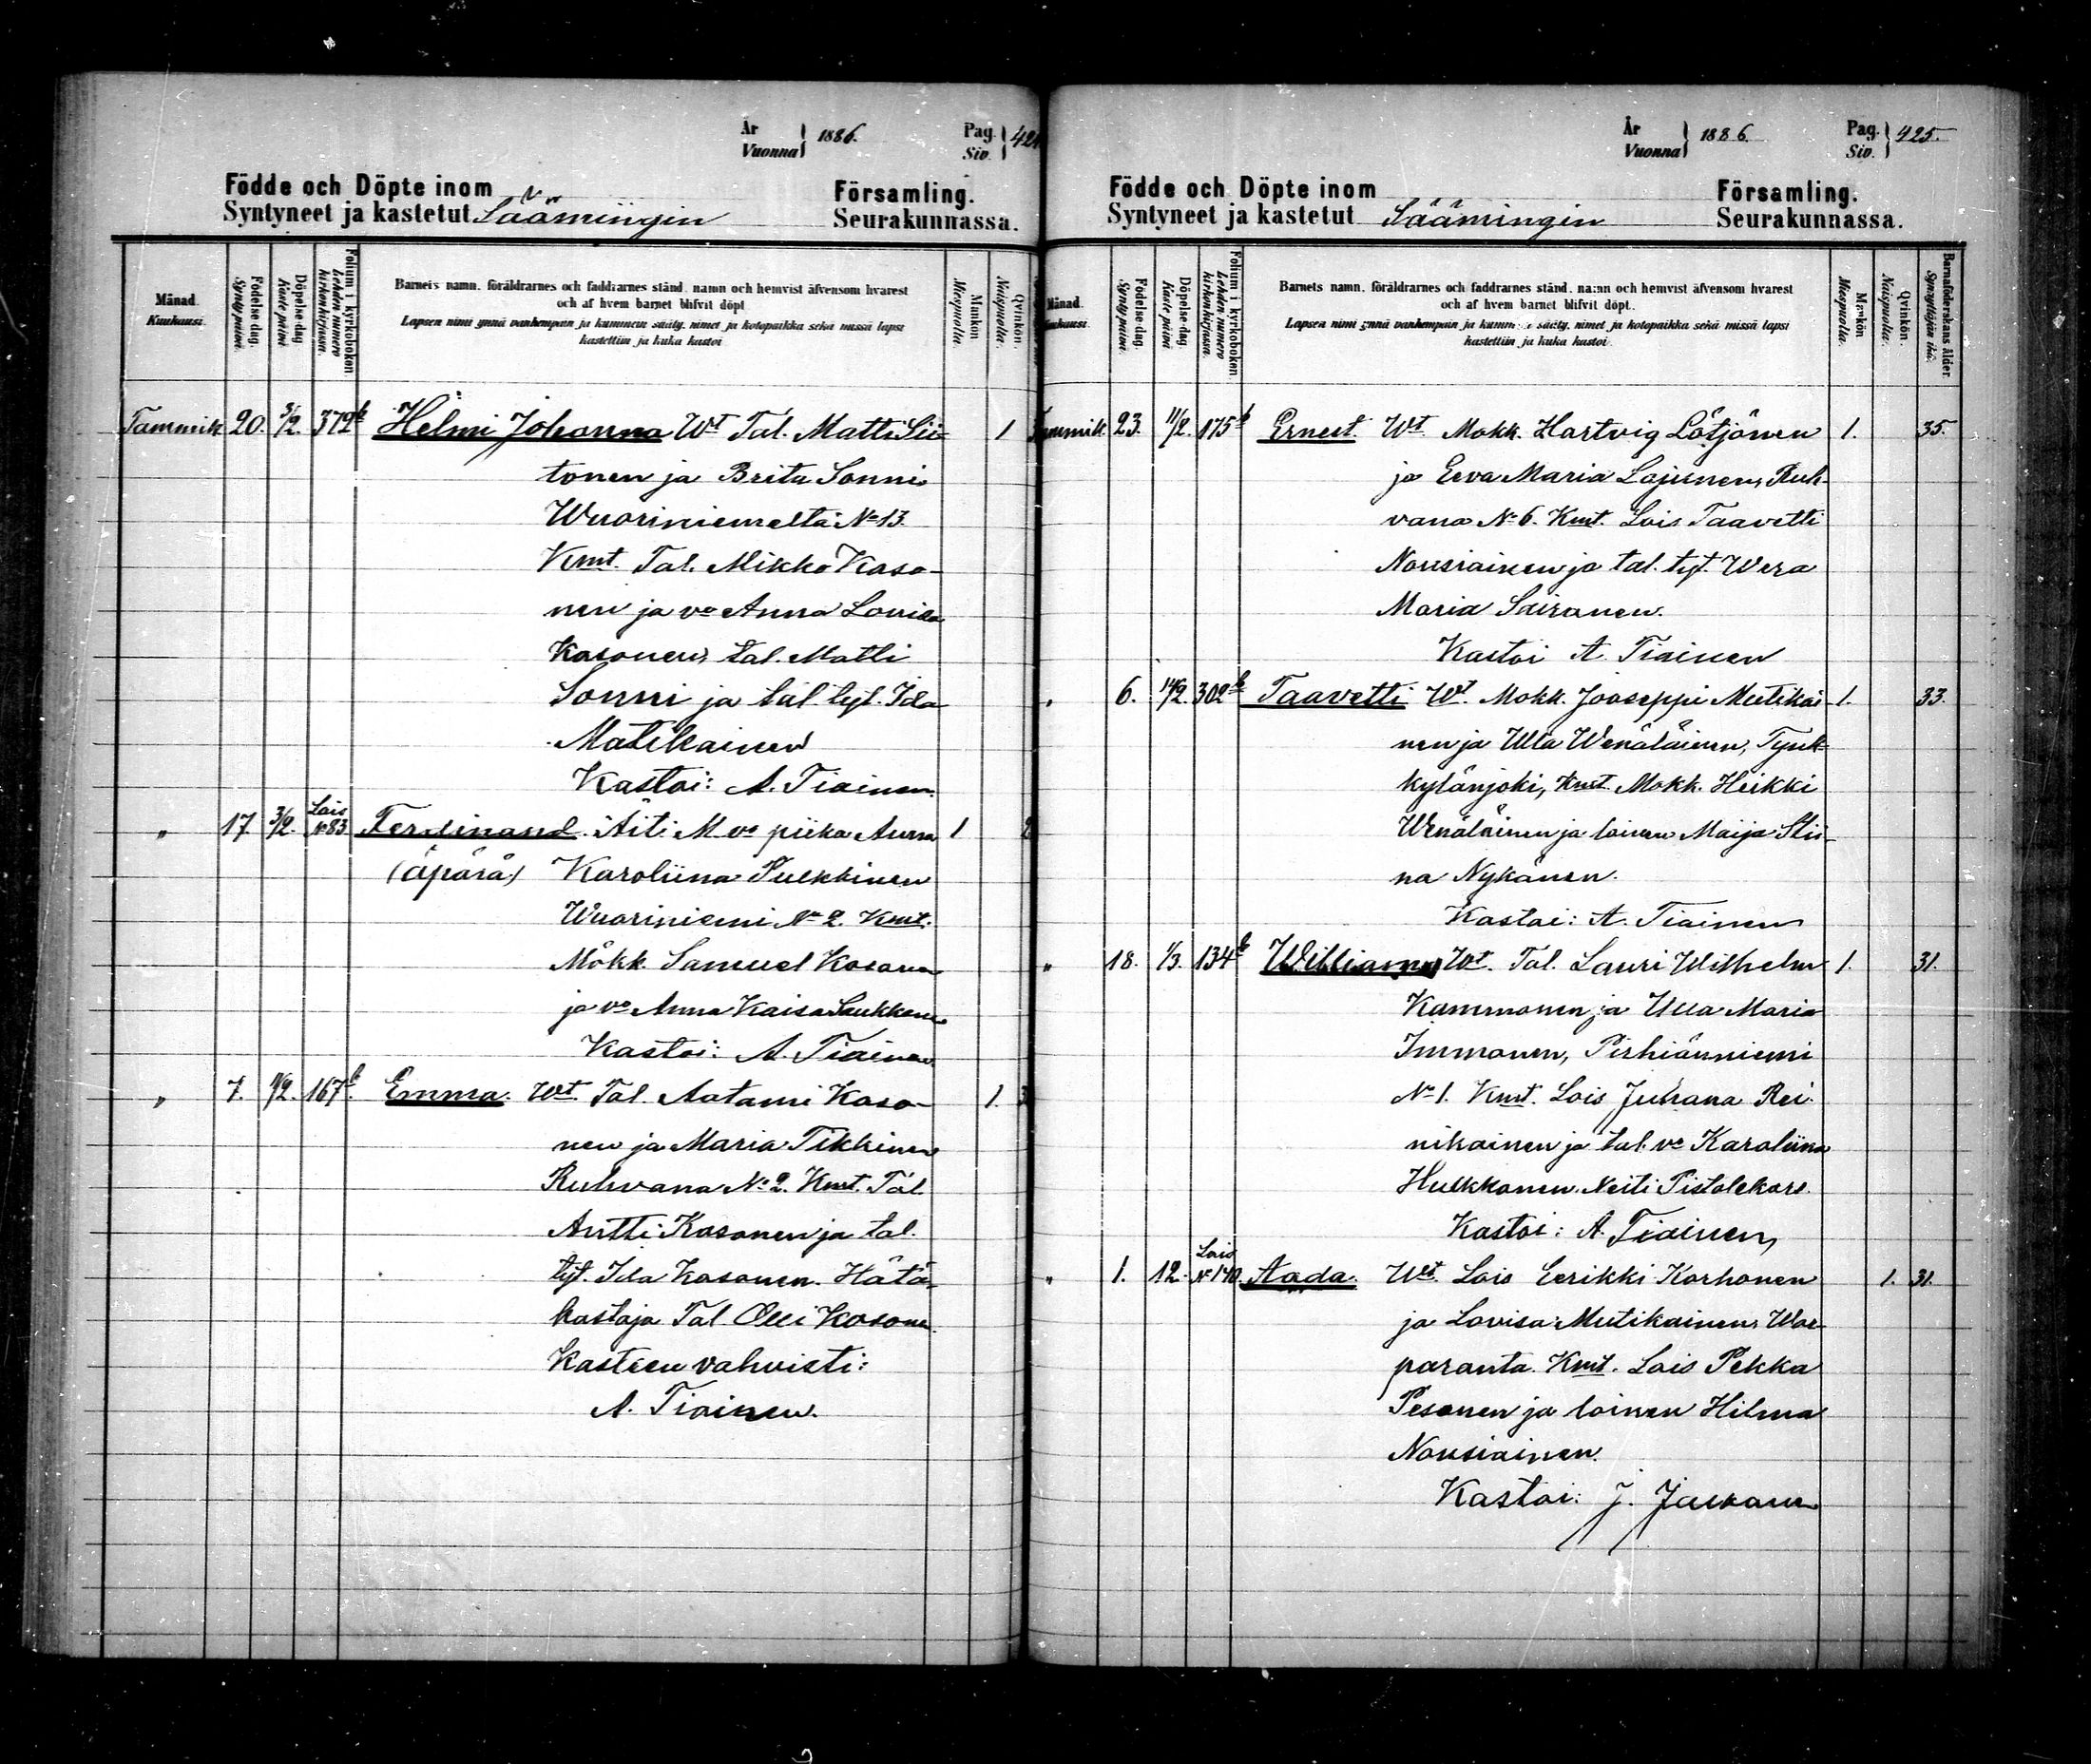 År
Vuonna } 1886.
Pag.
Siv. } 424
Födde och Döpte inom
Syntyneet ja kastetut Säämingin
Församling.
Seurakunnassa.
Månad.
Kuukausi.
Födelse-dag.
Synty-päivä.
Döpelse-dag.
Kaste-päivä.
Folium i kyrkoboken.
Lehden numero kirkonkirjassa.
Barnets namn, föräldrarnes och faddrarnes stånd, namn och hemvist äfvensom hvarest
och af hvem barnet blifvit döpt.
Lapsen nimi ynnä vanhempain ja kummein sääty, nimet ja kotopaikka sekä missä lapsi
kastettiin ja kuka kastoi.
Mankön.
Miespuolia.
Qvinkön.
Naispuolia.
Tammik. 20. 3/2. 372 b Helmi Johanna Wt Tal. Matti Sii- 1
tonen ja Brita Sonni
Wuoriniemeltä No 13.
Kmt. Tal. Mikko Kaso-
nen ja vo Anna Lovisa
Kasonen, tal. Matti
Sonni ja tal. tyt. Ida
Matikainen
Kastoi: A. Tiainen.
" 17. 3/2. Lois No 83 Ferdinand. Äiti M vo piika Anna 1
(äpärä) Karoliina Pulkkinen
Wuoriniemi No 2. Kmt.
Mökk. Samuel Kosonen
ja vo Anna Kaisa Laukkanen
Kastoi: A. Tiainen
" 7. /2. 167 b. Emma. Wt. Tal. Aatami Kaso- 1. 3
nen ja Maria Tikkinen
Ruhvana No 2. Kmt. Tal.
Antti Kasonen ja tal.
tyt. Ida Kasonen. Hätä-
kastaja Tal. Olli Kosonen.
Kasteen vahvisti:
A. Tiainen.
År
Vuonna } 1886.
Pag.
Siv. } 425.
Födde och Döpte inom
Syntyneet ja kastetut Säämingin
Församling.
Seurakunnassa.
Månad.
Kuukausi.
Födelse-dag.
Synty-päivä.
Döpelse-dag.
Kaste-päivä.
Folium i kyrkoboken.
Lehden numero kirkonkirjassa.
Barnets namn, föräldrarnes och faddrarnes stånd, namn och hemvist äfvensom hvarest
och af hvem barnet blifvit döpt.
Lapsen nimi ynnä vanhempain ja kummein sääty, nimet ja kotopaikka sekä missä lapsi
kastettiin ja kuka kastoi.
Mankön.
Miespuolia.
Qvinkön.
Naispuolia.
Barnaföderskans ålder.
Synnyttäjän ikä.
Tammik. 23. 11/2. 175 b Ernest. Wt. Mökk. Hartvig Lötjönen 1. 35.
ja Eeva Maria Lajunen, Ruh-
vana No 6. Kmt. Lois Taavetti
Nousiainen ja tal. tyt. Wera
Maria Sairanen.
Kastoi A. Tiainen
" 6. 14/2. 302 b Taavetti Wt. Mökk. Jooseppi Mutikai- 1. 33.
nen ja Ulla Wenäläinen, Tynk-
kylänjoki, Kmt. Mökk. Heikki
Wenäläinen ja loinen Maija Stii-
na Nykänen.
Kastoi: A. Tiainen
" 18. 1/3. 134 b William Wt. Tal. Lauri Wilhelm 1. 31.
Kammonen ja Ulla Maria
Immonen, Pirhiänniemi
No 1. Kmt. Lois Juhana Rei-
nikainen ja tal. vo Karoliina
Hulkkonen. Neiti Pistolekors.
Kastoi: A. Tiainen,
" 1. 12. Lois No 140 Aada. Wt. Lois Eerikki Korhonen 1. 31.
ja Lovisa Mutikainen, War-
paranta. Kmt. Lois Pekka
Pesonen ja loinen Hilma
Nousiainen.
Kastoi: J.